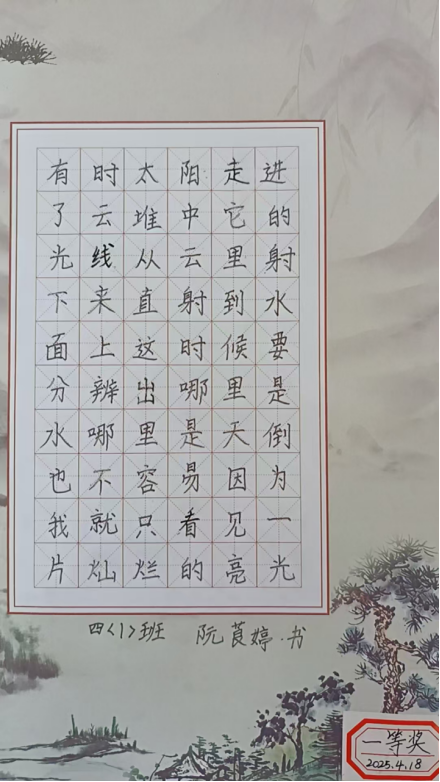 有时太阳走进
了云堆中它的
光线从云里射
下来直射到水
面上这时候要
分辨出哪里是
水哪里是天倒
也不容易因为
我就只看见一
片灿烂的亮光
四〈1〉班 阮莨婷.书
一等奖
2025.4.18